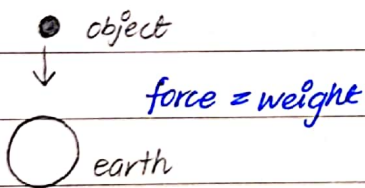 object
force = weight
earth